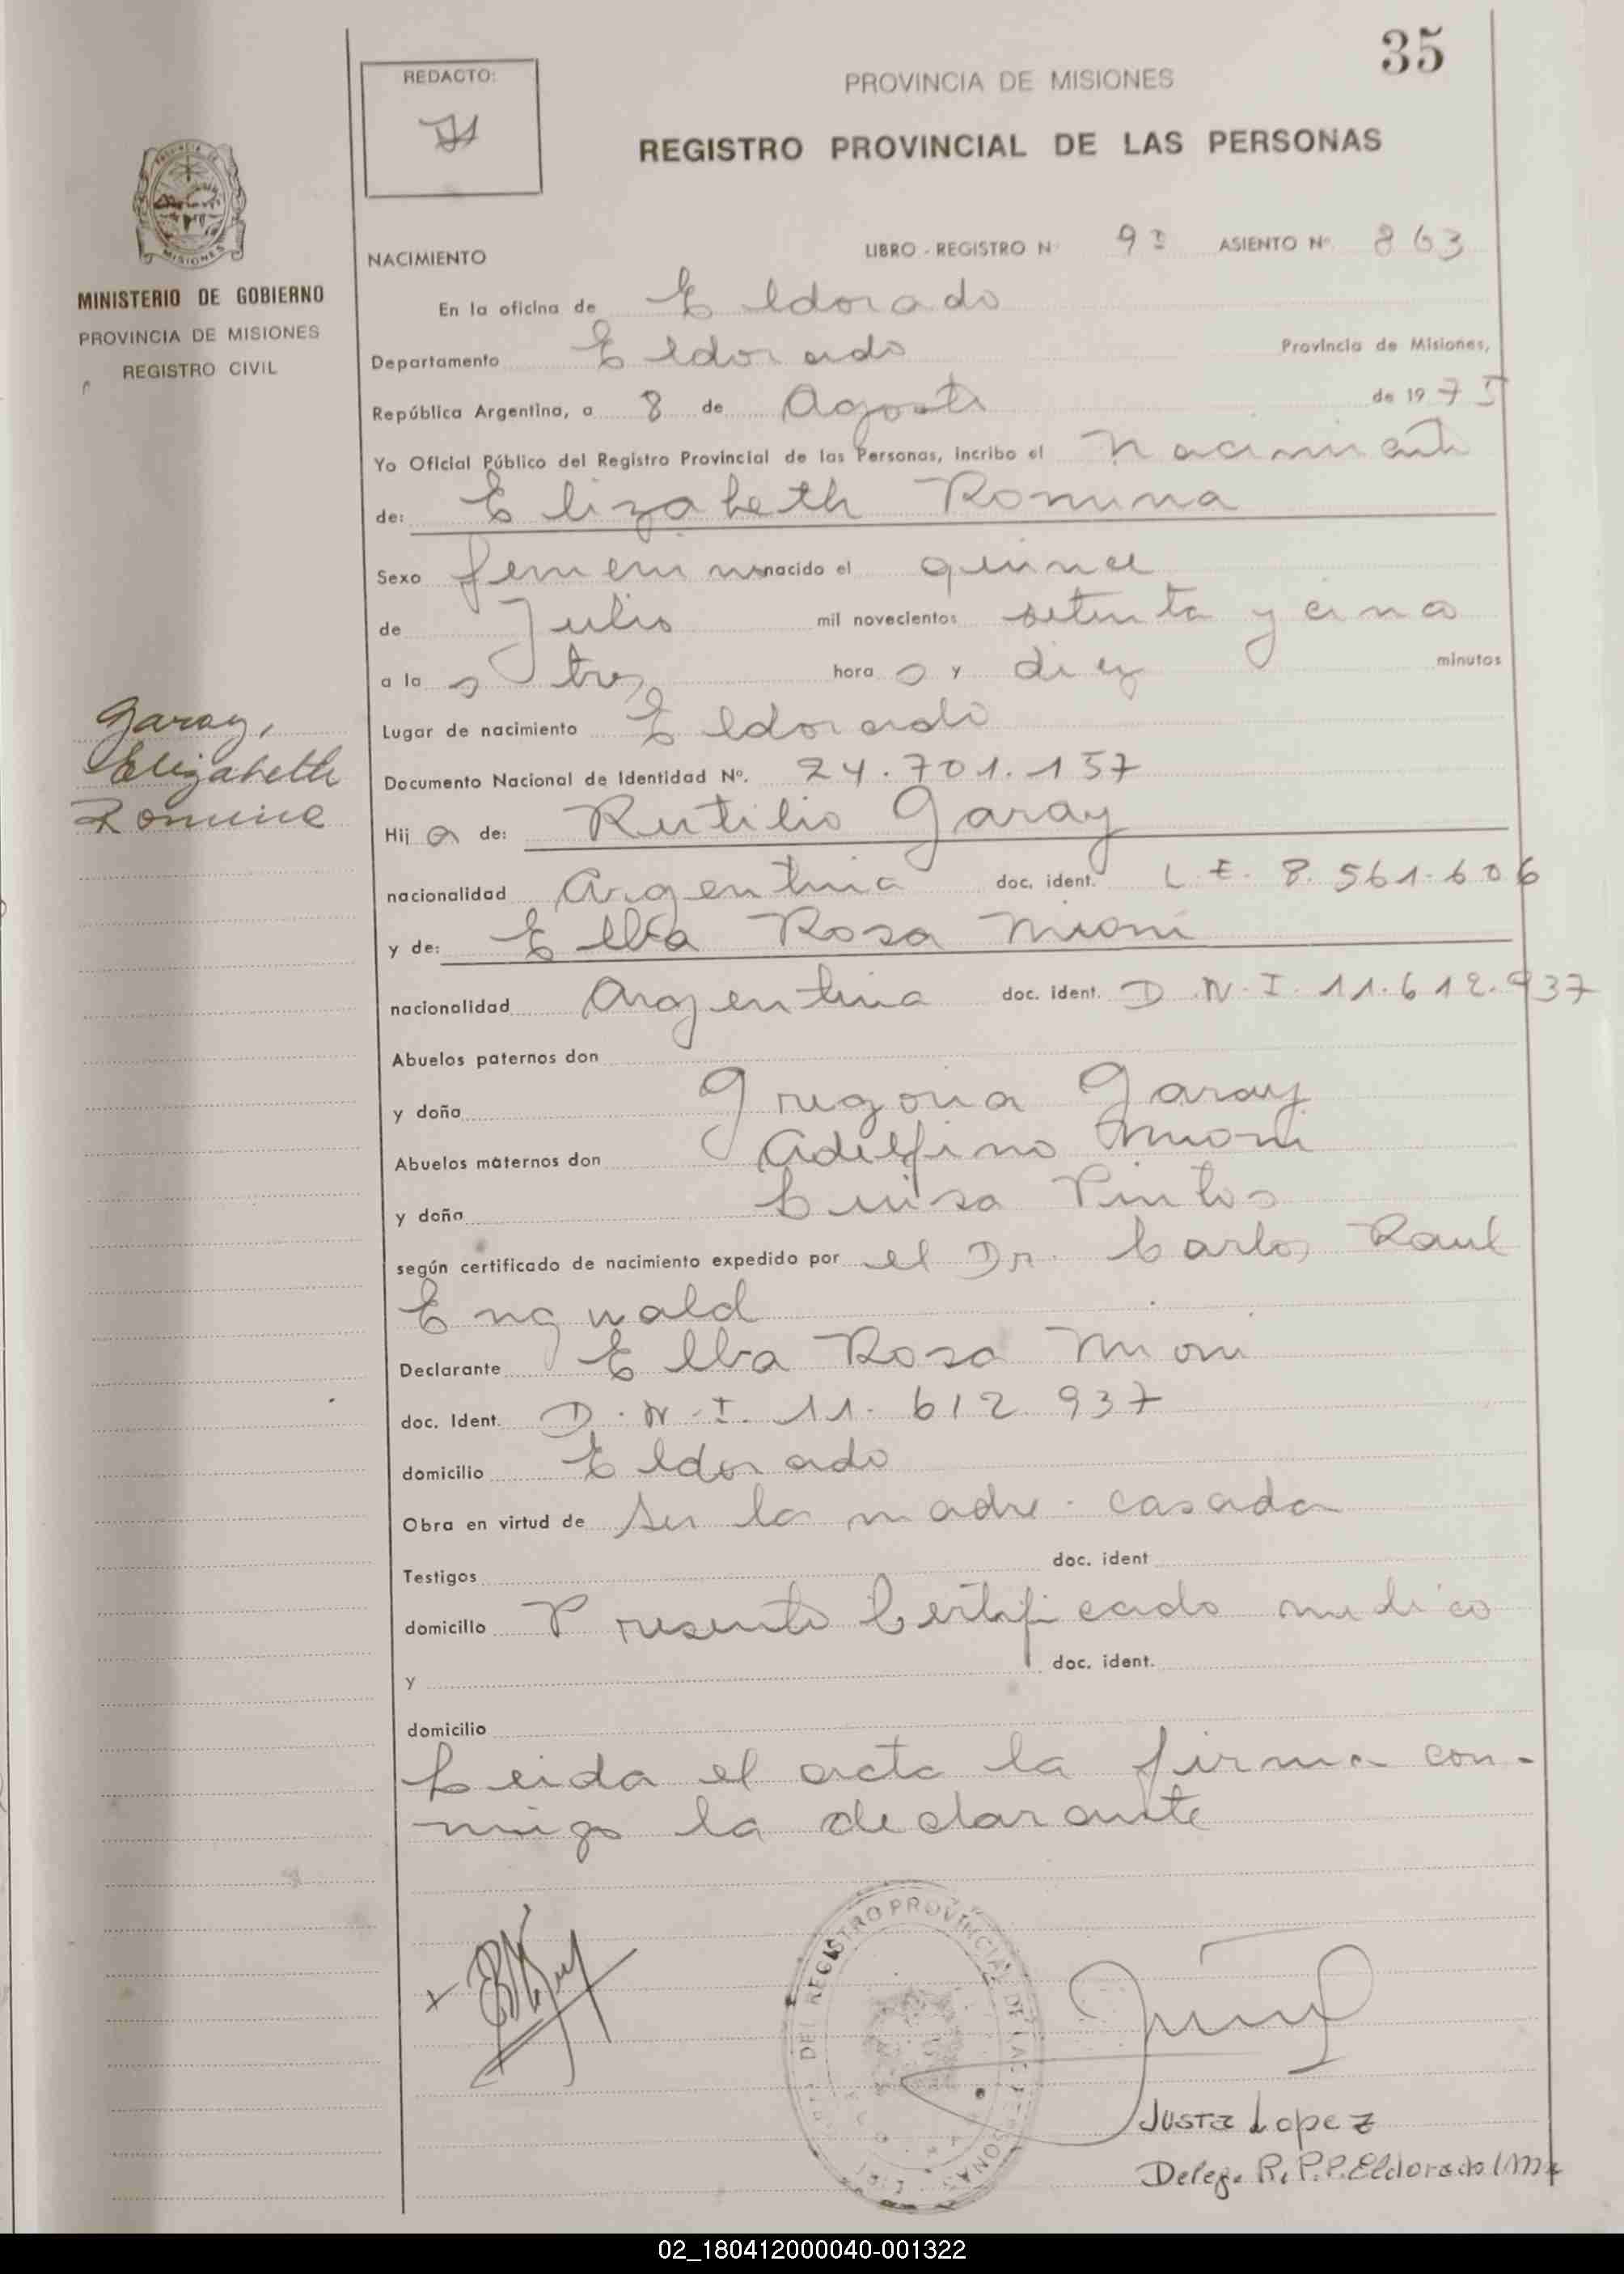 35
REDACTO:
PROVINCIA DE MISIONES
REGISTRO PROVINCIAL DE LAS PERSONAS
MINISTERIO DE GOBIERNO
PROVINCIA DE MISIONES
REGISTRO CIVIL
NACIMIENTO LIBRO - REGISTRO N° ASIENTO N° 863
En la oficina de Eldorado
Departamento Eldorado Provincia de Misiones,
República Argentina, a 8 de Agosto de 1975
Yo Oficial Público del Registro Provincial de las Personas, incribo el nacimiento
de: Elizabeth Romina
Sexo femenino nacido el quince
de Julio mil novecientos setenta y cinco
a la s tres hora s y diez minutos
Garay,
Elizabeth
Romina
Lugar de nacimiento Eldorado
Documento Nacional de Identidad Nº. 24.701.157
Hij a de: Rutilio Garay
nacionalidad Argentina doc. ident. L.E. 8.561.606
y de: Elba Rosa Mioni
nacionalidad Argentina doc. ident. D.N.I. 11.612.937
Abuelos paternos don
y doña Gregoria Garay
Abuelos maternos don Adelfino Mioni
y doña Luisa Pintos
según certificado de nacimiento expedido por el Dr. Carlos Raul
Engwald
Declarante Elba Rosa Mioni
doc. Ident. D.N.I. 11.612.937
domicilio Eldorado
Obra en virtud de ser la madre - casada
Testigos doc. ident
domicilio Presento Certificado medico
y doc. ident.
domicilio
Leida el acta la firma con-
migo la declarante
DEL REGISTRO PROVINCIAL DE LAS PERSONAS
Justa Lopez
Deleg. R.P.P. Eldorado
02_180412000040-001322